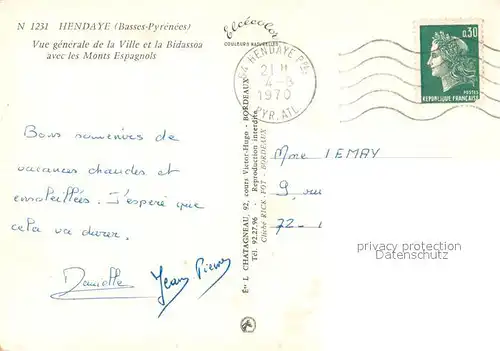 N 1231 HENDAYE (Basses-Pyrénées)
Vue génerale de la Ville et la Bidassoa
avec les Monts Espagnols
Elcécolor
COULEURS NATURELLES
64 HENDAYE PPAL
21 H
4-8
1970
PYR. ATL.
0,30
POSTES
REPUBLIQUE FRANÇAISE
Bons souvenirs de
vacances chaudes et
ensoleillées. J'espère que
cela va durer.
Danielle Jean Pierre
Éts L. CHATAGNEAU, 92, cours Victor-Hugo - BORDEAUX
Tél. 92.27.96 - Reproduction interdite
Cliché RICK-FOT - BORDEAUX
Mme LEMAY
9, rue
72-1
privacy protection
Datenschutz